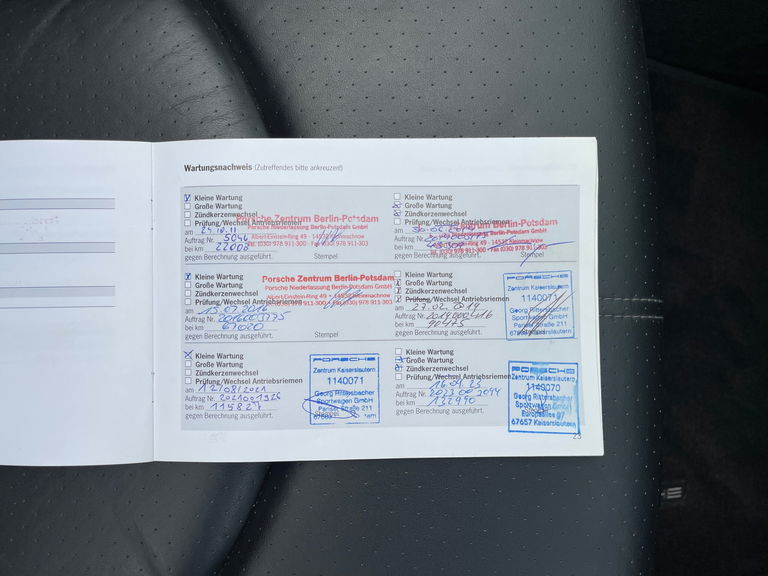 Wartungsnachweis (Zutreffendes bitte ankreuzen!)
Kleine Wartung
Große Wartung
Zündkerzenwechsel
Prüfung/Wechsel Antriebsriemen
am 24.10.11
Auftrag Nr. 5046
bei km 22000
gegen Berechnung ausgeführt.
Porsche Zentrum Berlin-Potsdam
Porsche Niederlassung Berlin-Potsdam GmbH
Albert-Einstein-Ring 49 - 14532 Kleinmachnow
Tel. (030) 978 911-300 - Fax (030) 978 911-303
Kleine Wartung
Große Wartung
Zündkerzenwechsel
Prüfung/Wechsel Antriebsriemen
am
Auftrag Nr.
bei km
gegen Berechnung ausgeführt.
Berlin-Potsdam
Berlin-Potsdam GmbH
49 - 14532 Kleinmachnow
978 911-300 - Fax (030) 978 911-303
Stempel
Kleine Wartung
Große Wartung
Zündkerzenwechsel
Prüfung/Wechsel Antriebsriemen
am 13.07.2016
Auftrag Nr. 2016003775
bei km 67020
gegen Berechnung ausgeführt.
Porsche Zentrum Berlin-Potsdam
Porsche Niederlassung Berlin-Potsdam GmbH
Albert-Einstein-Ring 49 - 14532 Kleinmachnow
978 911-300 - Fax (030) 978 911-303
Stempel
Kleine Wartung
Große Wartung
Zündkerzenwechsel
Prüfung/Wechsel Antriebsriemen
am 27.02.2019
Auftrag Nr. 2019000416
bei km 90475
gegen Berechnung ausgeführt.
PORSCHE
Zentrum Kaiserslautern
1140071
Georg Rittersbacher
Sportwagen GmbH
Pariser Straße 211
Kleine Wartung
Große Wartung
Zündkerzenwechsel
Prüfung/Wechsel Antriebsriemen
am 12/08/2021
Auftrag Nr. 2021001926
bei km 115827
gegen Berechnung ausgeführt.
PORSCHE
Zentrum Kaiserslautern
1140071
Georg Rittersbacher
Sportwagen GmbH
Pariser Straße 211
Kleine Wartung
Große Wartung
Zündkerzenwechsel
Prüfung/Wechsel Antriebsriemen
am 16.09.23
Auftrag Nr. 2023002094
bei km 132990
gegen Berechnung ausgeführt.
PORSCHE
Zentrum Kaiserslautern
1140070
Georg Rittersbacher
Sportwagen GmbH
67657 Kaiserslautern
23